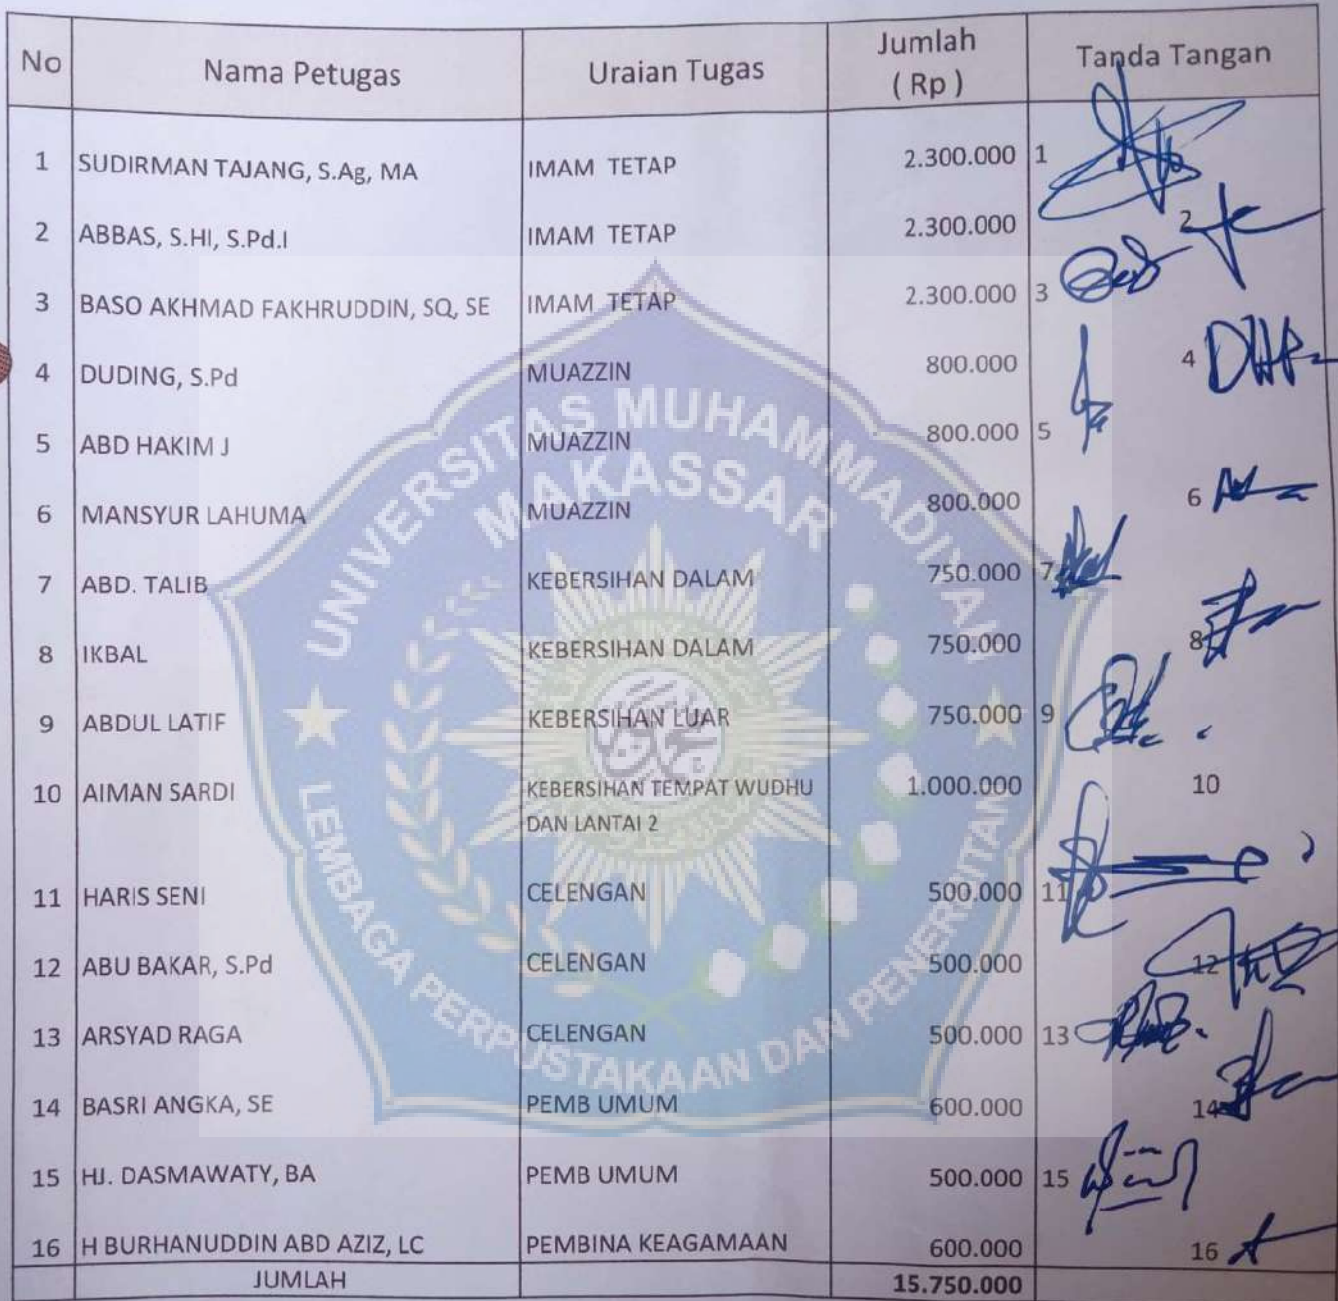 No Nama Petugas Uraian Tugas Jumlah ( Rp ) Tanda Tangan
1 SUDIRMAN TAJANG, S.Ag, MA IMAM TETAP 2.300.000 1
2 ABBAS, S.HI, S.Pd.I IMAM TETAP 2.300.000 2
3 BASO AKHMAD FAKHRUDDIN, SQ, SE IMAM TETAP 2.300.000 3
4 DUDING, S.Pd MUAZZIN 800.000 4
5 ABD HAKIM J MUAZZIN 800.000 5
6 MANSYUR LAHUMA MUAZZIN 800.000 6
7 ABD. TALIB KEBERSIHAN DALAM 750.000 7
8 IKBAL KEBERSIHAN DALAM 750.000 8
9 ABDUL LATIF KEBERSIHAN LUAR 750.000 9
10 AIMAN SARDI KEBERSIHAN TEMPAT WUDHU 1.000.000 10
DAN LANTAI 2
11 HARIS SENI CELENGAN 500.000 11
12 ABU BAKAR, S.Pd CELENGAN 500.000 12
13 ARSYAD RAGA CELENGAN 500.000 13
14 BASRI ANGKA, SE PEMB UMUM 600.000 14
15 HJ. DASMAWATY, BA PEMB UMUM 500.000 15
16 H BURHANUDDIN ABD AZIZ, LC PEMBINA KEAGAMAAN 600.000 16
JUMLAH 15.750.000
UNIVERSITAS MUHAMMADIYAH
MAKASSAR
LEMBAGA PERPUSTAKAAN DAN PENERBITAN